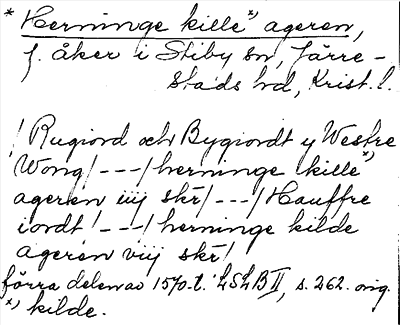 * Herninge kille x) ageren,
f. åker i Stiby sn, Järre-
stads hd, Krist. l.
/ Rugiord och Bygiordt y Westre
Wong / --- / herninge kille x)
ageren iiij skr̄ / --- / Hauffre
iordt / --- / herninge kilde
ageren viij skr̄ /
förra delen av 1570-t. LSLB II, s. 262. orig.
x) kilde.